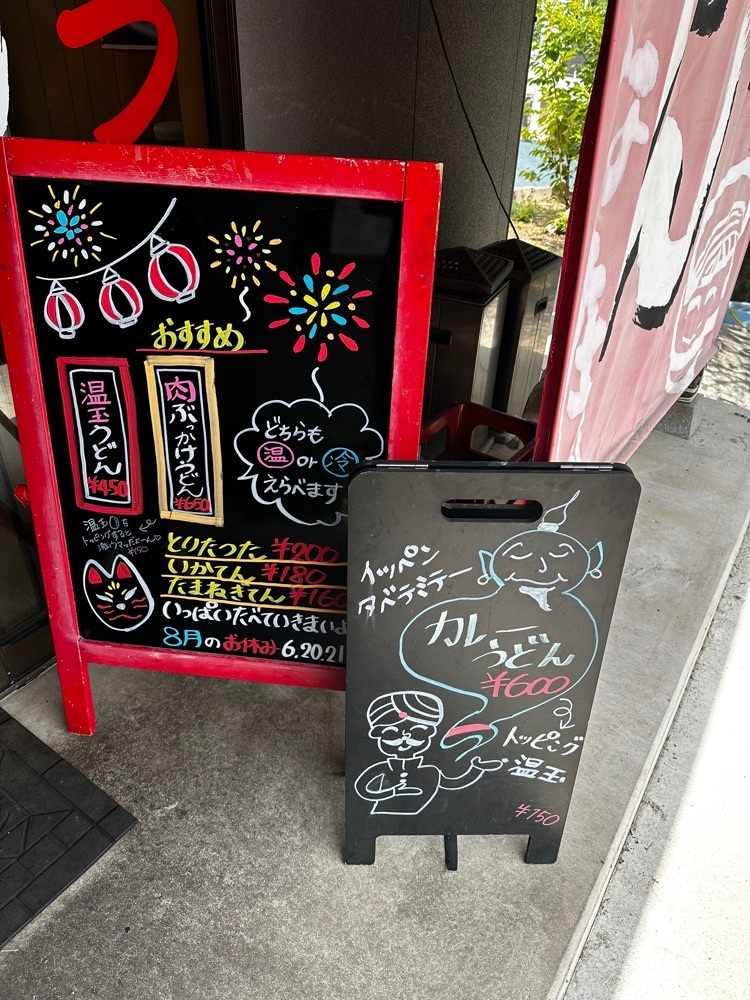 う
おすすめ
温玉うどん
¥450
肉ぶっかけうどん
¥650
どちらも
温 or 冷
えらべます
温玉を
トッピングすると
¥150
とりたつた ¥200
いかてん ¥180
たまねぎてん ¥160
いっぱいたべていきまいよ
8月のお休み 6.20.21
イッペン
タベテミテー
カレー
うどん
¥600
トッピング
温玉
¥150